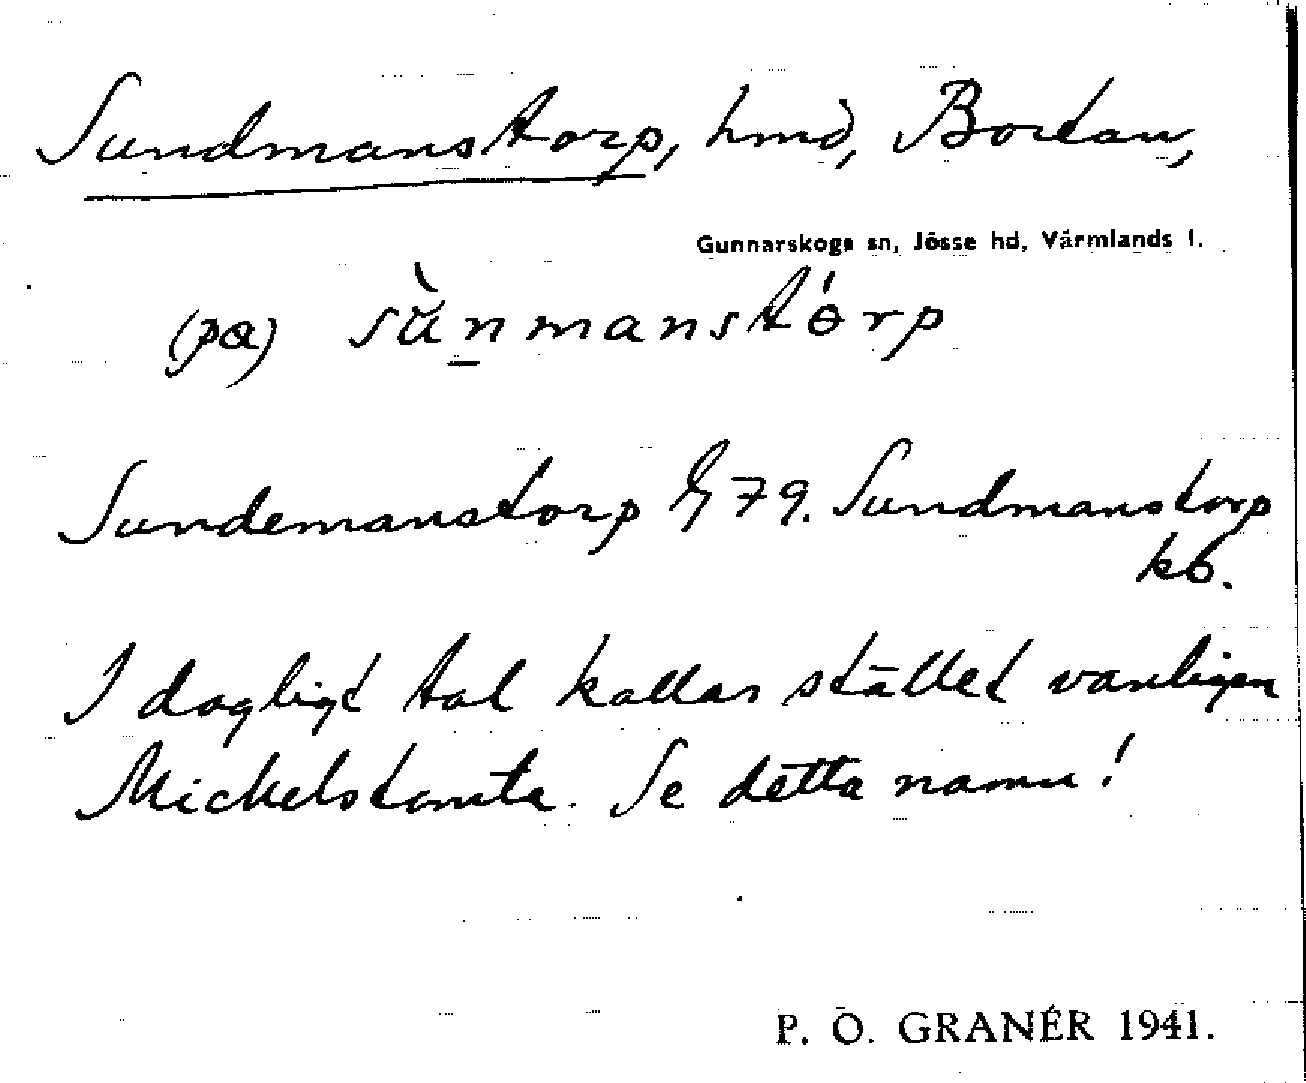 Sundmanstorp, hmd, Bortan,
Gunnarskogs sn, Jösse hd, Värmlands l.
(pɑ) sùnmanstórp
Sundemanstorp 79. Sundmanstorp
kb.
I dagligt tal kallas stället vanligen
Mickelstomta. Se detta namn!
P. O. GRANÉR 1941.